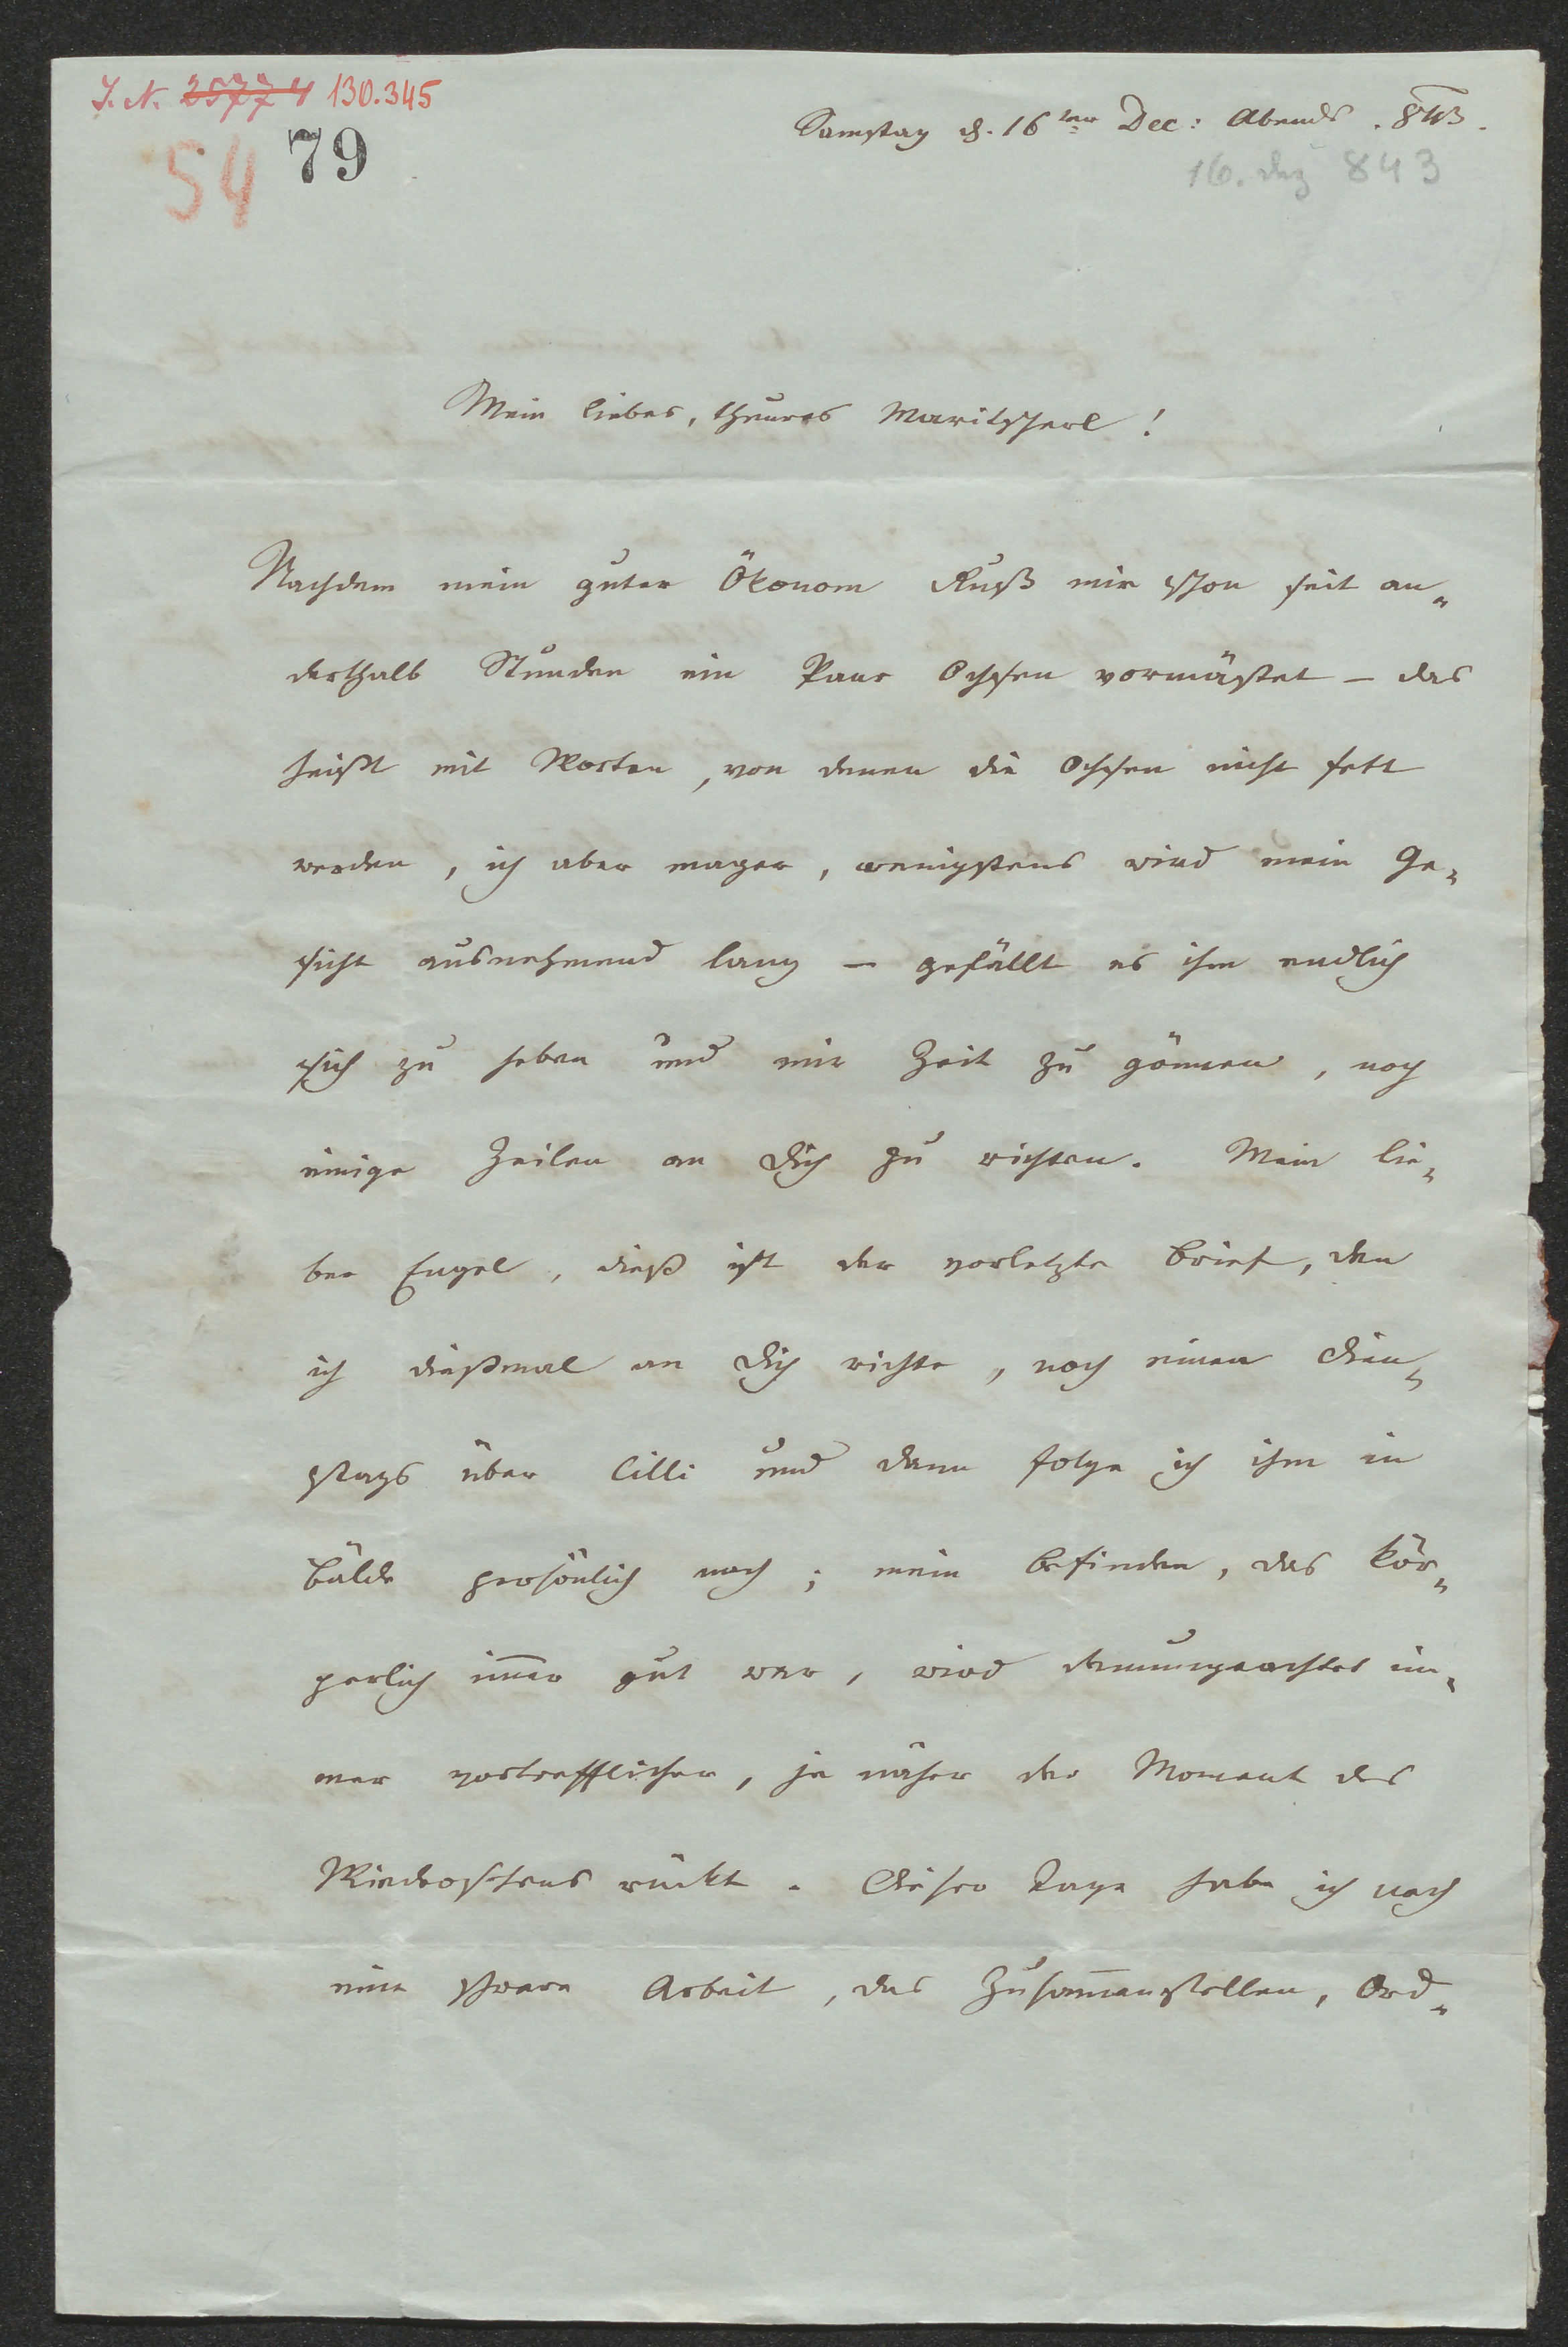 I. N. 25774 130.345
Samstag d. 16ten Dec: Abends. 843.
54 79
16. Dez 843
Mein liebes, theures Maritscherl!
Nachdem mein guter Ökonom Ruß mir schon seit an„
derthalb Stunden ein Paar Ochsen vormästet – das
heißt mit Worten, von denen die Ochsen nicht fett
werden, ich aber mager, wenigstens wird mein Ge„
sicht ausnehmend lang – gefällt es ihm endlich
sich zu heben und mir Zeit zu gönnen, noch
einige Zeilen an Dich zu richten. Mein lie„
ber Engel, dieß ist der vorletzte Brief, den
ich dießmal an Dich richte, noch einen Dien„
stags über Cilli und dann folge ich ihm in
Bälde persönlich nach; mein Befinden, das kör„
perlich im̅er gut war, wird demungeachtet im„
mer vortrefflicher, je näher der Moment des
Wiedersehens rückt. Dieser Tage habe ich noch
eine schwere Arbeit, das Zusam̅enstellen, Ord„